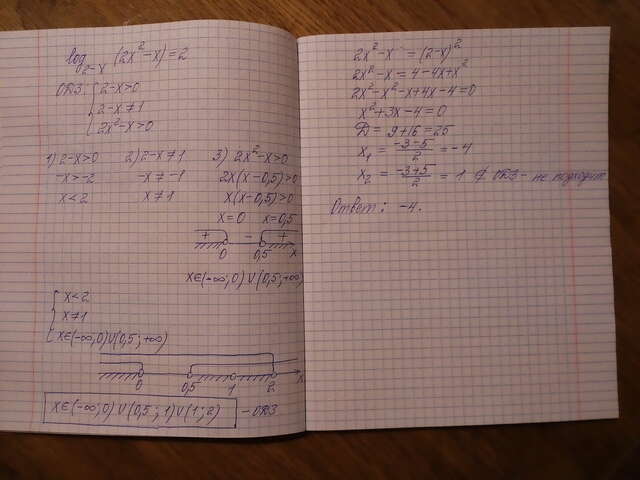 log₂₋ₓ (2x²-x)=2
ОДЗ: { 2-x>0
2-x≠1
2x²-x>0
1) 2-x>0 2) 2-x≠1 3) 2x²-x>0
-x>-2 -x≠-1 2x(x-0,5)>0
x<2 x≠1 x(x-0,5)>0
x=0 x=0,5
+ - +
0 0,5 x
x∈(-∞;0)∪(0,5;+∞)
{ x<2
x≠1
x∈(-∞;0)∪(0,5;+∞)
0 0,5 1 2 x
x∈(-∞;0)∪(0,5;1)∪(1;2) -ОДЗ
2x²-x=(2-x)²
2x²-x=4-4x+x²
2x²-x²-x+4x-4=0
x²+3x-4=0
D=9+16=25
x₁=(-3-5)/2=-4
x₂=(-3+5)/2=1 ∉ ОДЗ- не подходит
Ответ: -4.